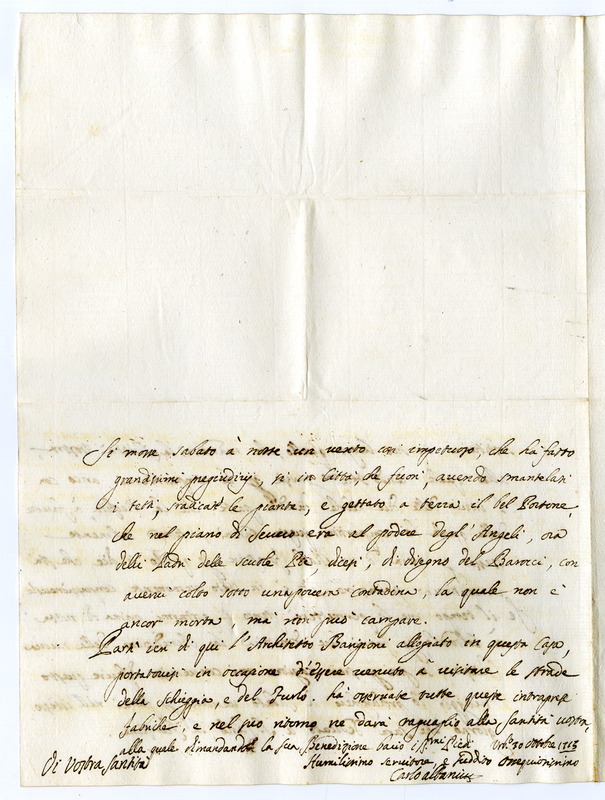 Si mosse sabato à notte un vento così impetuoso, che hà fatto
grandissimi pregiudizij, sì in Città, che fuori, avendo smantelati
i tetti, sradicate le piante, e gettato a terra il bel Portone,
che nel piano di era al podere degl' Angeli, ora
delli Padri delle scuole Pie, dicesi, di disegno del Barocci, con
avervi colto sotto una povera contadina, la quale non è
ancor morta mà non può campare.
Partì ieri di quì l'Architetto Barigioni allogiato in questa Casa,
portatovisi in occasione d'essere venuto à visitare le strade
della Schieggia, e del Furlo. hà osservate tutte queste intraprese
fabriche, e nel suo ritorno ne darà raguaglio alla Santità vostra,
alla quale dimandando la sua Benedizione bacio i ssmi Piedi Urb.o 30 ottobre 1713
Di Vostra Santità
Humilissimo servitore, e suddito ossequiosissimo
Carlo Albani